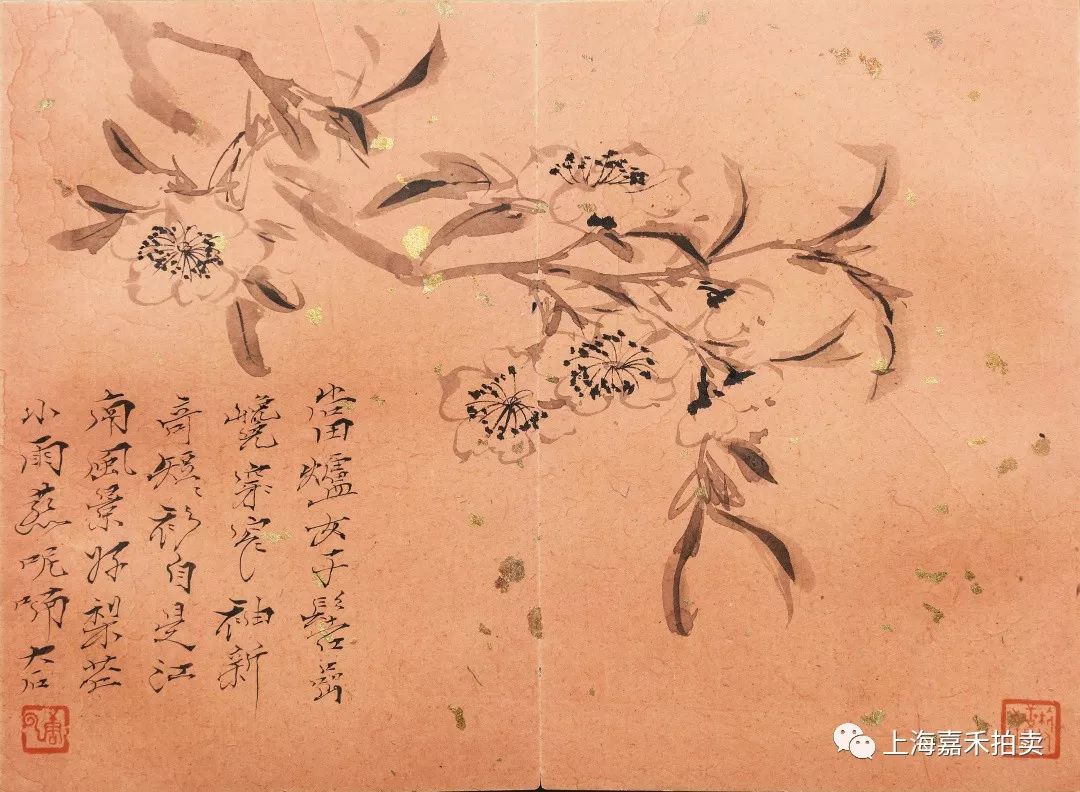 當爐女子髻
嶢窄袖新
奇短〻衫自是江
南風景好梨花
小雨燕呢喃 大石
上海嘉禾拍卖